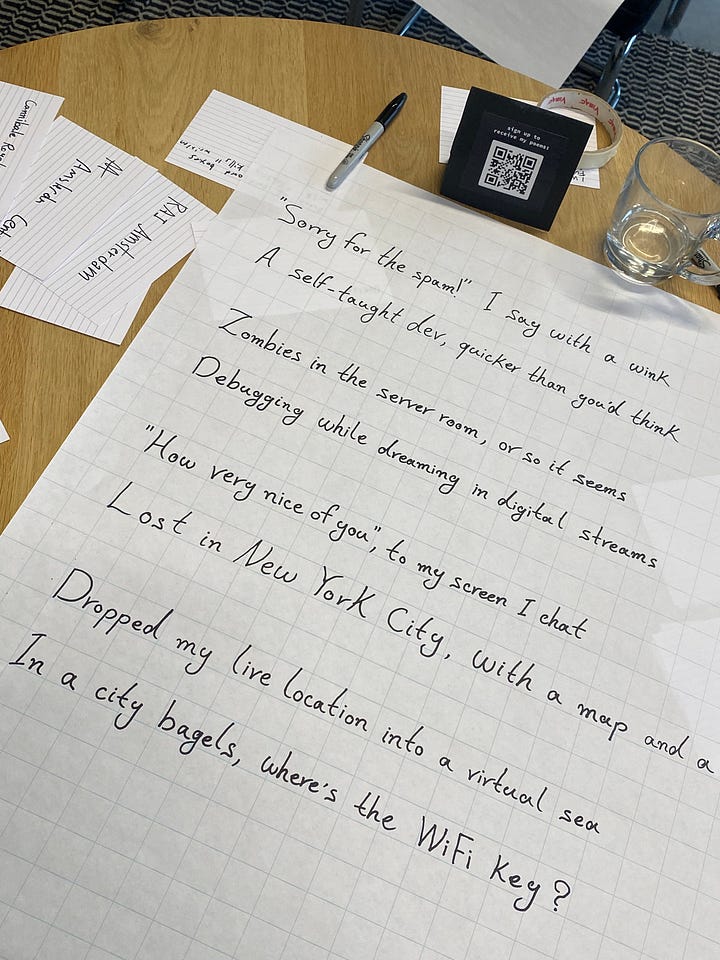 "Sorry for the spam!" I say with a wink
A self-taught dev, quicker than you'd think
Zombies in the server room, or so it seems
Debugging while dreaming in digital streams
"How very nice of you", to my screen I chat
Lost in New York City, with a map and a
Dropped my live location into a virtual sea
In a city bagels, where's the WiFi key?
sign up to
receive my poems!
RAI Amsterdam
Amsterdam
Cannibale